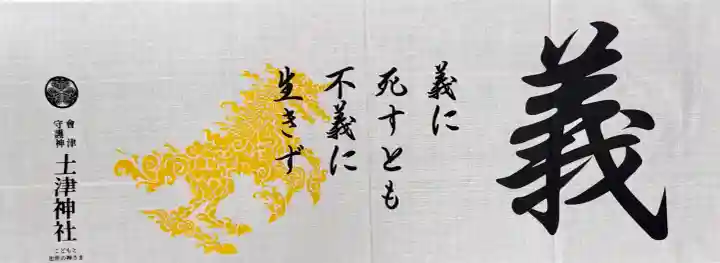 義
義に
死すとも
不義に
生きず
會津
守護神
土津神社
こどもと
出世の神さま